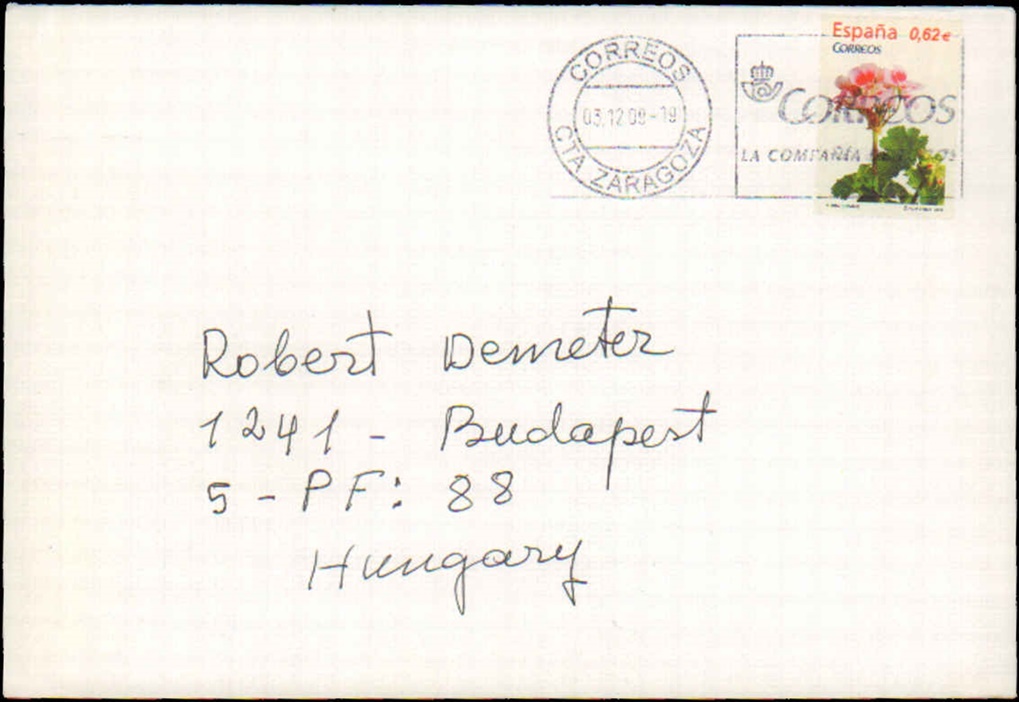 España 0,62€
CORREOS
CORREOS
03.12 09-19
CTA. ZARAGOZA
CORREOS
LA COMPAÑÍA
Robert Demeter
1241 - Budapest
5 - PF: 88
Hungary